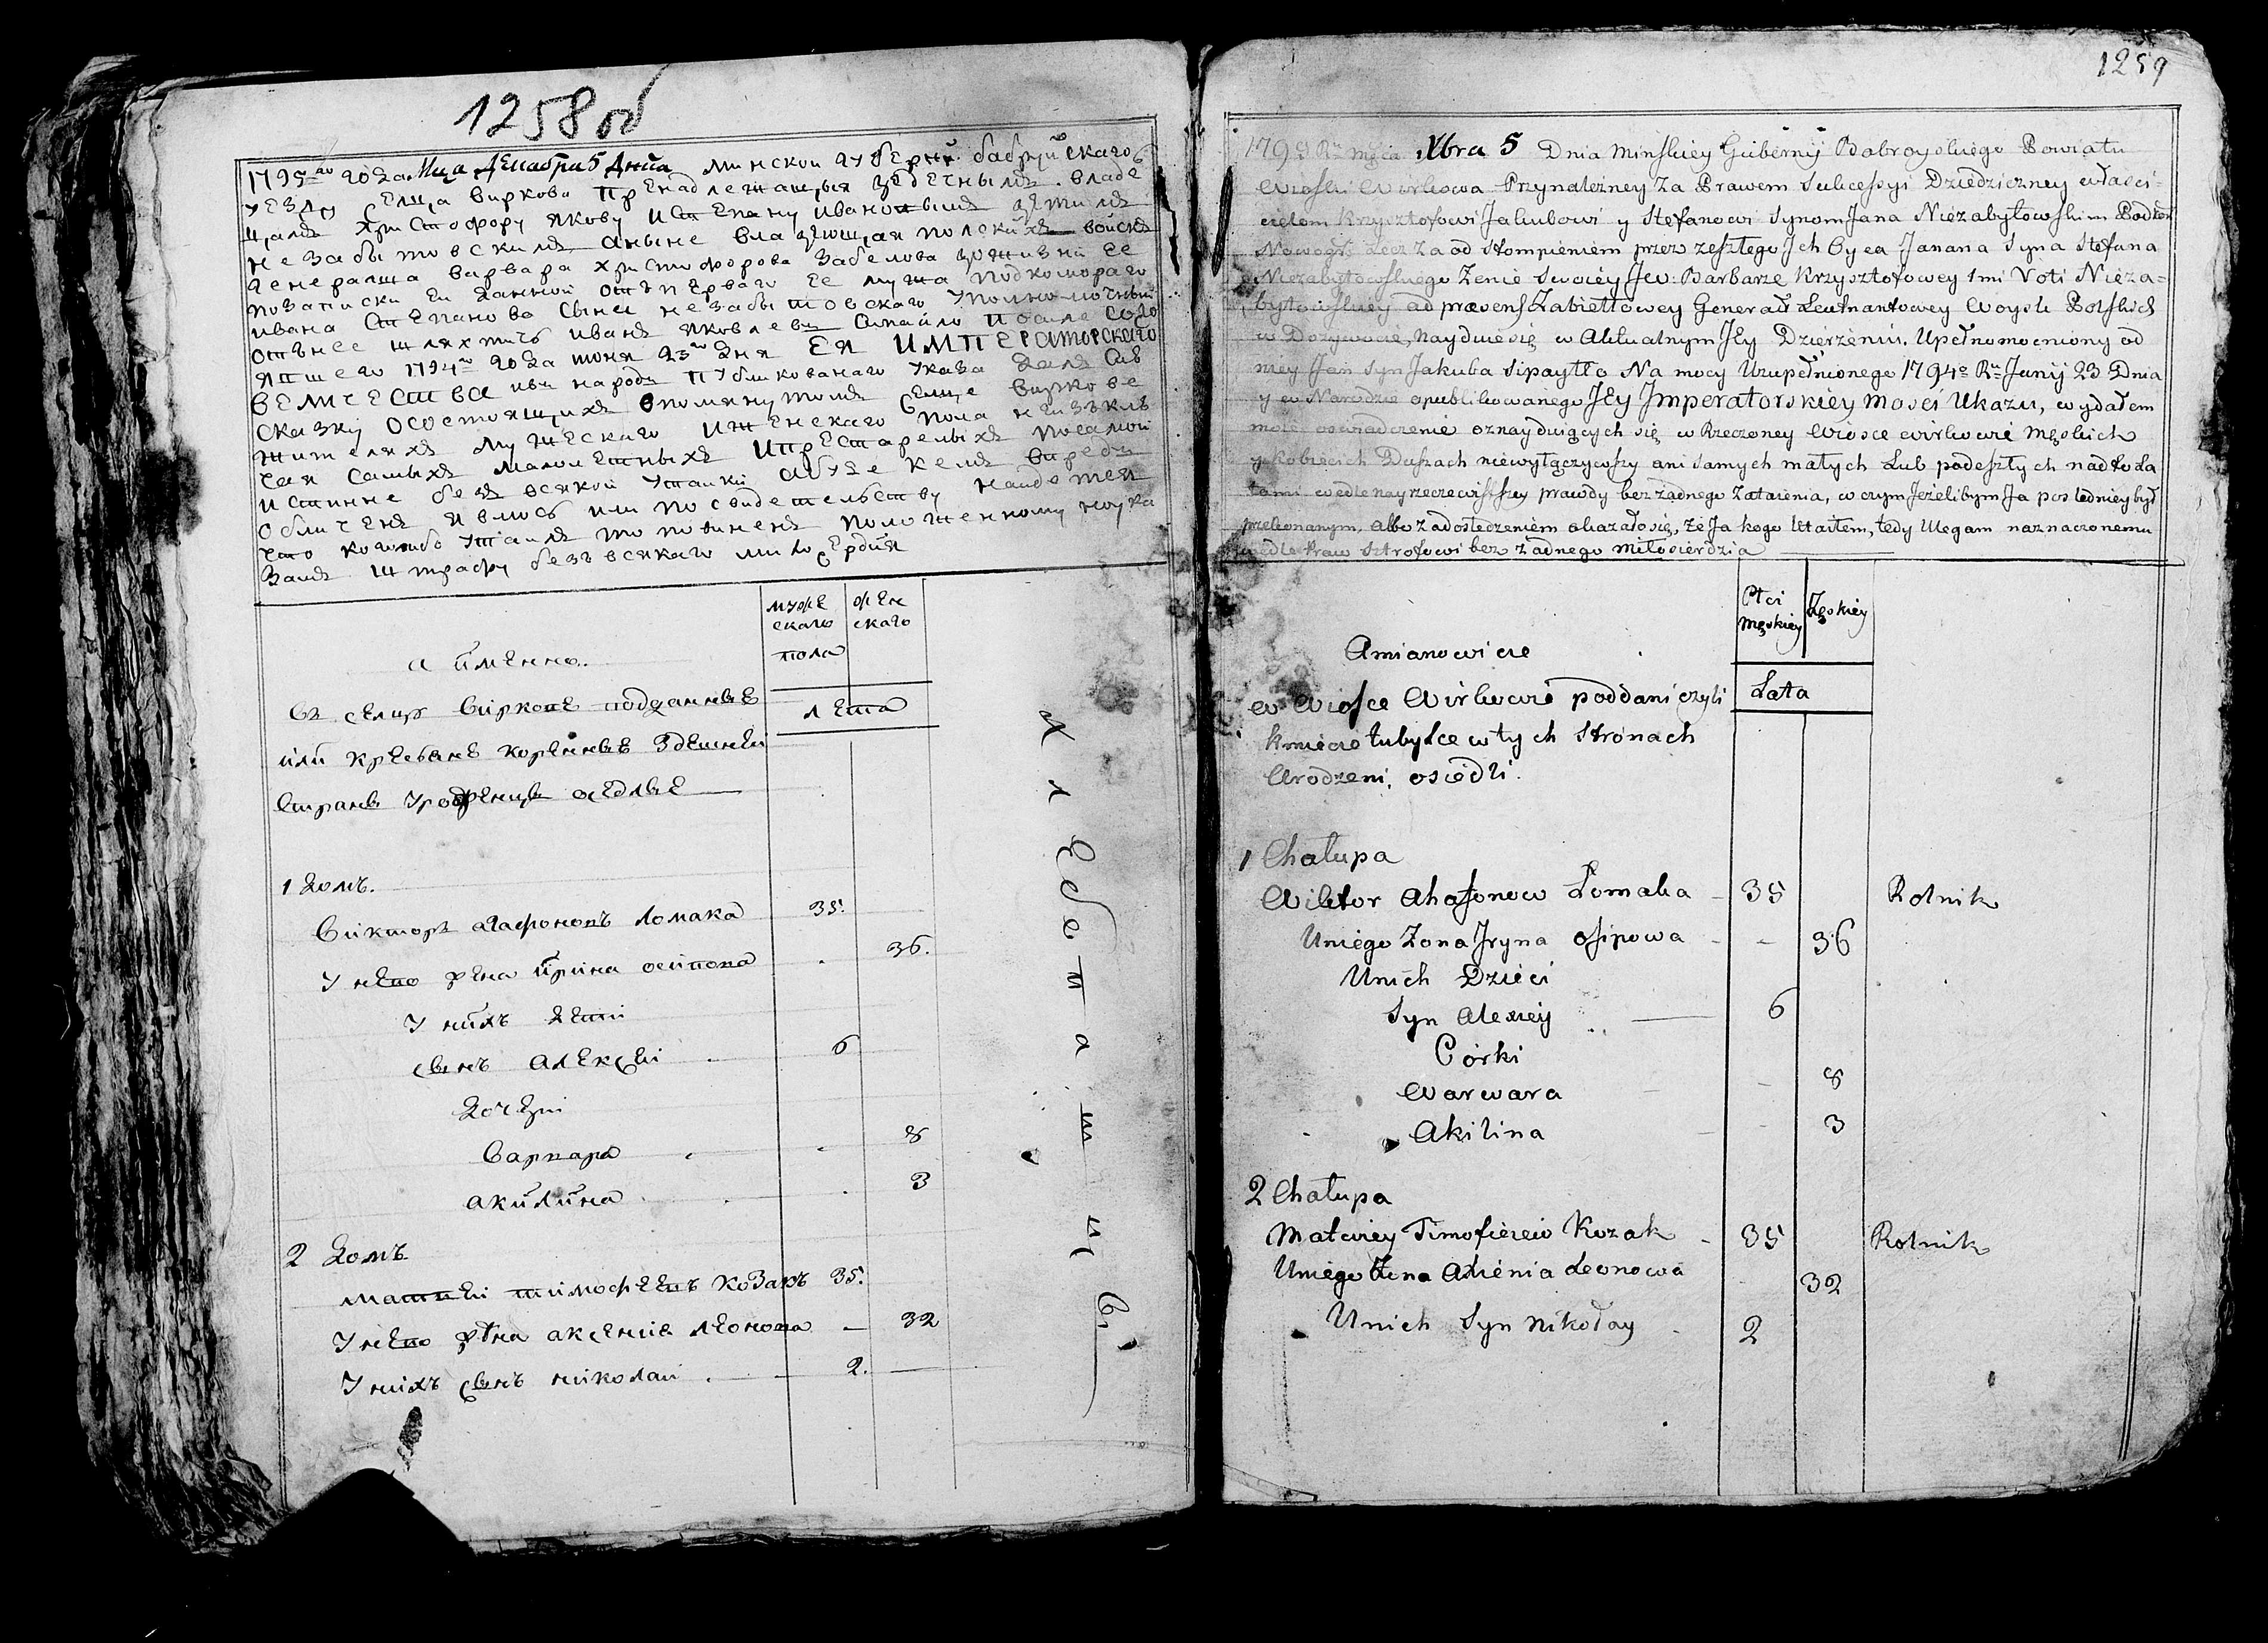 1258 об
1795го года Мца декабря 5 дня минской губерний бабруйскаго
уезду селца виркова принадлежащыя зедечнымъ владе
щамъ христофору якову и степану ивановымъ детямъ
незабытовскимъ аныне владеющая полскихъ войскъ
генералша варвара христофорова забелова
позаписки ей данной отъ перваго ее мужа подкомораго
ивана степанова сына незабытовскаго уполномочный
отънее шляхтичъ иванъ яковлевъ сипайло
1794го года июня 23го дня ЕЯ ИМПЕРАТОРСКАГО
ВЕЛИЧЕСТВА ивъ народъ публикованаго указа далъ сию
сказку осостоящихъ впомянутомъ селце виркове
жителяхъ мужескаго иженскаго пола неизъклю
чая самыхъ малолетныхъ ипрестарелыхъ посамой
истинне безъ всякой утайки абуде кемъ впредь
обличенъ явлюсь или посвидетельству найдется
что коголибо утаилъ то повиненъ положенному поука
замъ штрафу безъ всякаго милосердия
а именно.
мужескаго пола
женскаго
лета
въ селце виркове подданные
или крестяне коренные здешней
стране уроженцы оседлые
1 домъ.
Викторъ агафоновъ ломака 35.
У него жена ирина осипова 36.
У нихъ дети
сынъ алексей 6
дочери
варвара 8
акилина 3
2 домъ
матвей тимофеевъ козакъ 35.
У него жена аксения леонова 32
У нихъ сынъ николай 2.
Хлебопашцы
1259
1795 Ru Mca Xbra 5 Dnia Minskiey Gubernij Bobroyskiego Powiatu
Wioski Wirkowa Przynależney Za Prawem Sukcessyi Dziedziczney właści=
cielom Krzysztofowi Jakubowi y Stefanowi Synom Jana Niezabytowskim Podkom
Nowogr: Lecz Za odstompieniem przez zeszłego Jch Oyca Janana Syna Stefana
Niezabytowskiego Zenie swoiey Jw: Barbarze Krzysztofowey 1mi Voti Nieza=
bytowskiey ad præsens Zabiełłowey Generał Leutnantowey Woysk Polskich
w Dozywocie, nayduie się w Aktualnym Jey Dzierżeniu. Upełnomocniony od
niey Jan Syn Jakuba Sipayłło Na mocy Uzupełnionego 1794o Ru Junij 23 Dnia
y w Narodzie opublikowanego JEy Jmperatorskiey Mosci Ukazu, wydałem
moie oswiadczenie oznayduiących się w Rzeczoney Wiosce Wirkowie Męskich
y kobiecich Duszach niewyłączywszy ani samych małych Lub podeszłych nadto La
tami wedle nayrzeczewistszey prawdy bez żadnego Zataienia, w czym Jeżelibym Ja posledniey był
przekonanym, Albo z adosledzeniem okazało się, że Ja kogo Utaiłem, tedy Ulegam naznaczonemu
wedle Praw Sztrofowi bez żadnego miłosierdzia
Amianowicie
Płci Męskiey
Żęskiey
Lata
w Wiosce Wirkowie poddani czyli
kmiecie tubylce w tych stronach
Urodzeni, osiedli.
1 Chałupa
Wiktor Ahafonow Łomaka 35 Rolnik
Uniego Zona Jryna Osipowa 36
Unich Dzieci
Syn Alexiey 6
Córki
Warwara 8
Akilina 3
2 Chałupa
Matwiey Timofieiew Kozak 35 Rolnik
Uniego Żona Axienia Leonowa 32
Unich Syn Nikołay 2